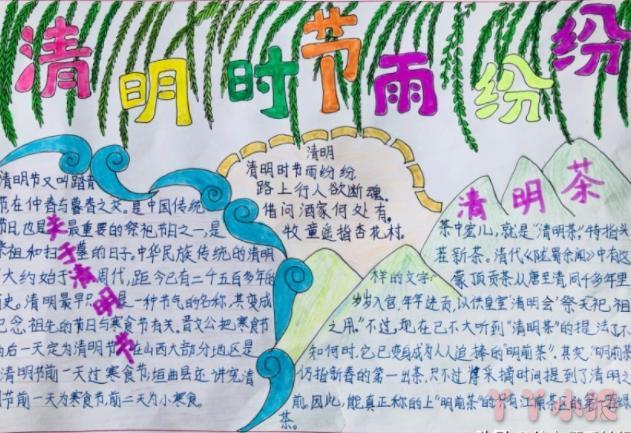 清明时节雨纷纷
清明
清明时节雨纷纷
路上行人欲断魂
借问酒家何处有,
牧童遥指杏花村
关于清明节
清明节又叫踏青
节在仲春与暮春之交。是中国传统
节日,也是最重要的祭祀节日之一,是
祭祖和扫墓的日子。中华民族传统的清明
大约始于周代,距今已有二千五百多年的
史。清明最早是一种节气的名称,其变成
纪念祖先的节日与寒食节有关。晋文公把寒食节
后一天定为清明节。山西大部分地区是
清明节前一天过寒食节,垣曲县还讲究清
明节前一天为寒食节,前二天为小寒食。
清明茶
茶中宠儿,就是"清明茶",特指头
在新茶。清代《陇蜀余闻》中有这
样的文字: 蒙顶贡茶从唐至清,间千多年里
岁岁入宫,年年进贡,以供皇室'清明会'祭天祀祖
之用。"不过,现在已不大听到"清明茶"的提法了不
知何时,它已变身成为人人追捧的"明前茶"。其实,"明前茶
仍指新春的第一出茶,只不过将采摘时间提到了清明之
前。因此,能真正称的上"明前茶"的只有江浙茶区的
茶。
丫丫小报